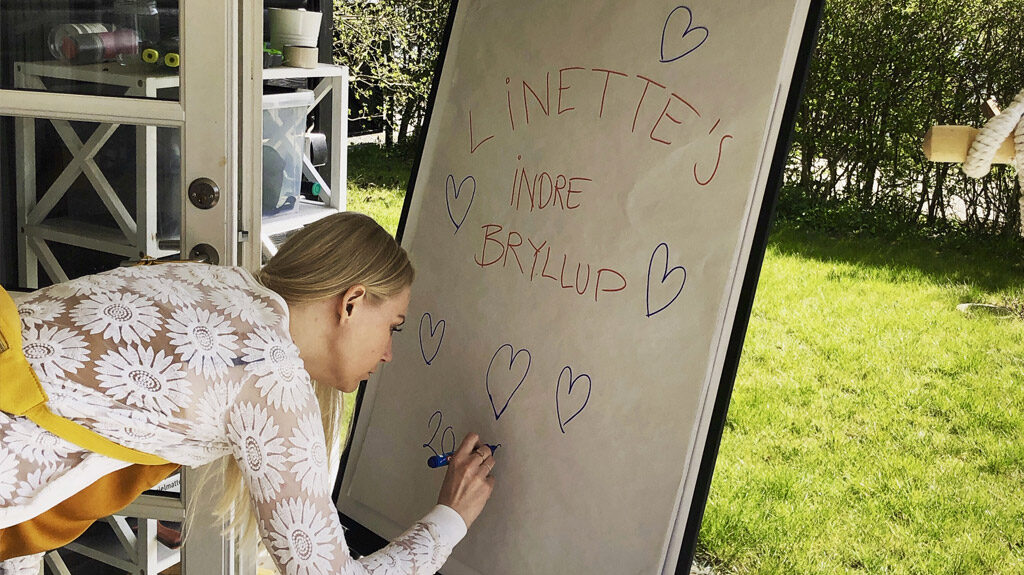 LiNETTE'S
iNDRE
BRYLLUP
20